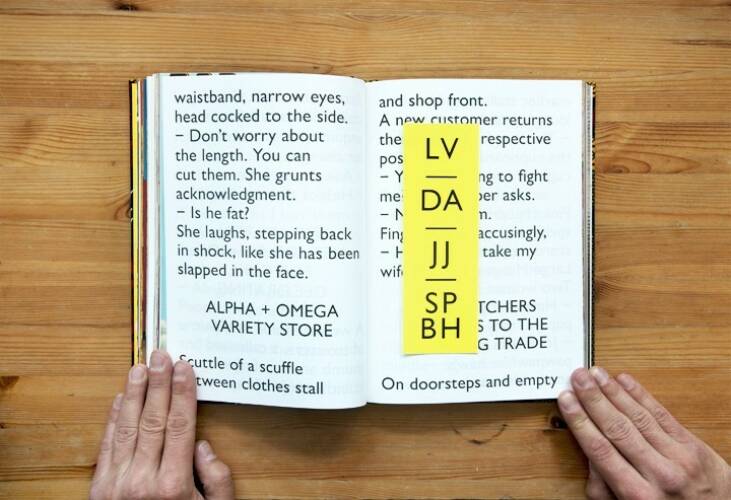 waistband, narrow eyes,
head cocked to the side.
– Don't worry about
the length. You can
cut them. She grunts
acknowledgment.
– Is he fat?
She laughs, stepping back
in shock, like she has been
slapped in the face.
ALPHA + OMEGA
VARIETY STORE
Scuttle of a scuffle
between clothes stall
and shop front.
A new customer returns
the respective
– Y ng to fight
me per asks.
– N m.
Fing accusingly,
– H take my
wif
TCHERS
S TO THE
G TRADE
On doorsteps and empty
LV
DA
JJ
SP
BH